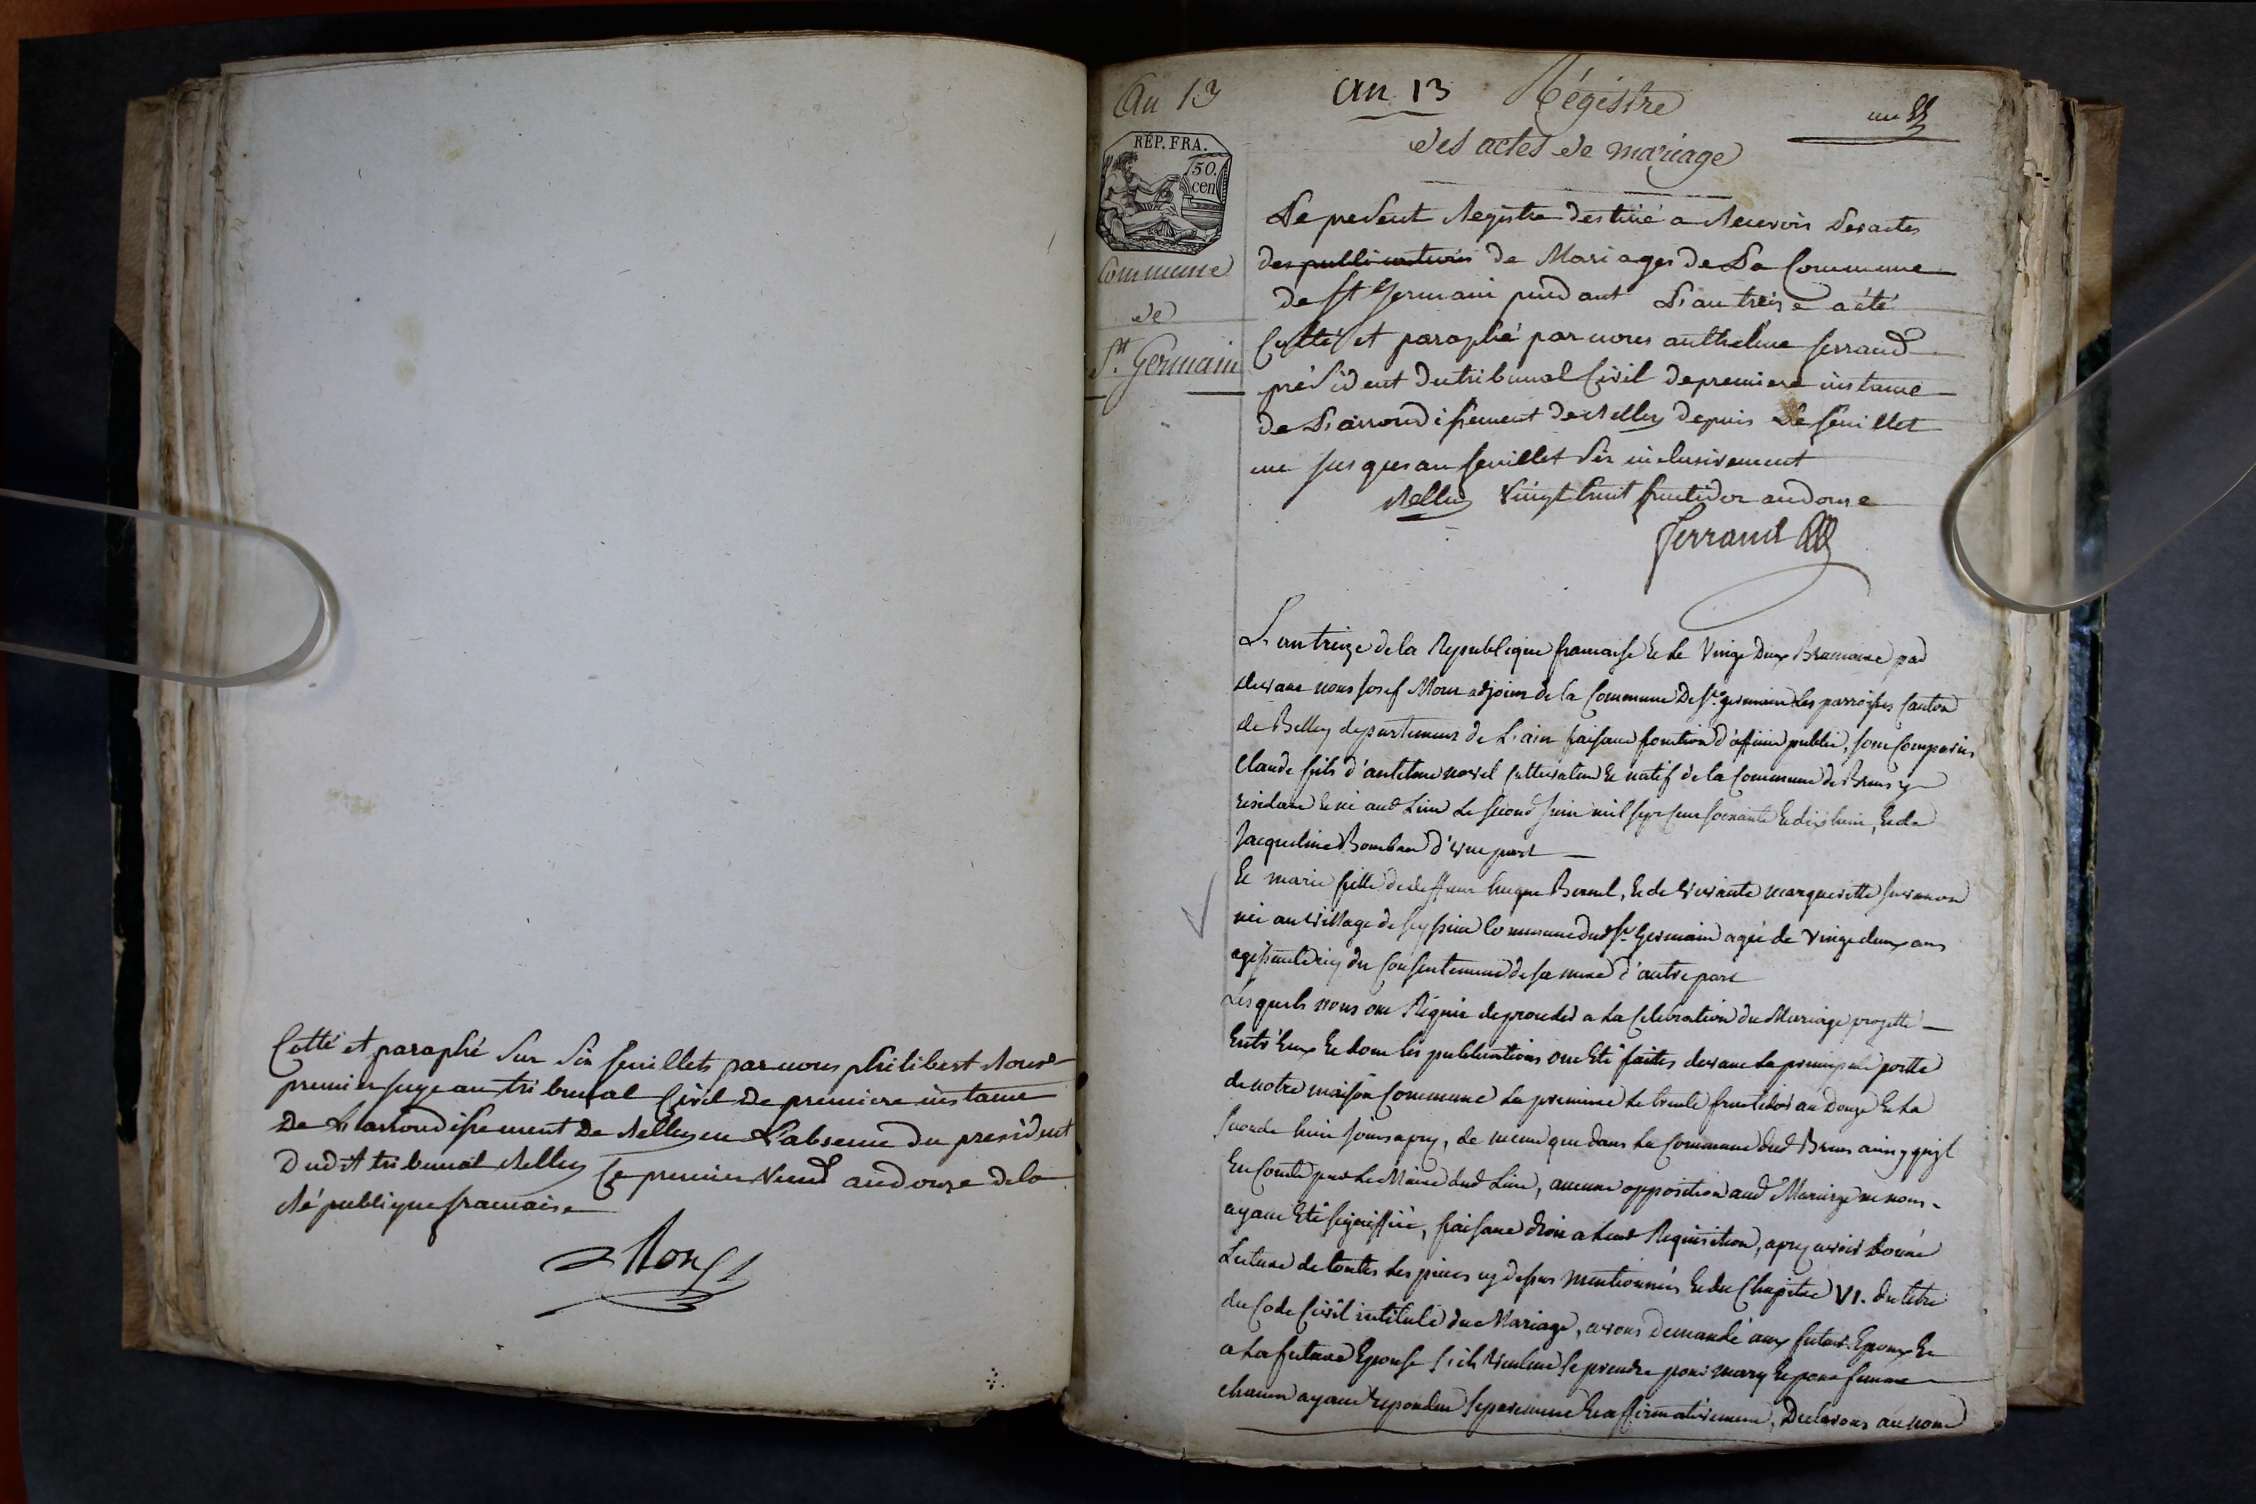 Cotté et paraphé sur six feuillets par nous philibert Roux
premier juge au tribunal Civil de premiere instance
De L'arrondissement De Belley en L'absence du president
Dudit tribunal Belley Ce premier Vend. an douze de la
République francaise
Roux
An 13
RÉP. FRA.
50.
cen
Commune
de
St. Germain
an 13 Régistre
un
des actes de mariage
Le present Registre destiné a Recevoir Les actes
des publications de Mariages de La Commune
de St Germain pendant L'an treize a été
Cotté et paraphé par nous anthelme ferrand
président du tribunal Civil de premiere instance
de L'arrondissement de Belley depuis Le feuillet
un jusques au feuillet six inclusivement
Belley Vingt huit fructidor an douze
Ferrand
L'an treize de la Republique francaise Et le Vingt Deux Brumaire par
devant nous Josef Roux adjoint de la Commune De St. germain Les parroisses Canton
de Belley departement de L'ain faisant fonction d'officier public, sont Comparus
Claude fils d'antelme cultivateur Et natif de la Commune de Brens y
residant Et né aud Lieu Le second Juin mil sept cent soixante Et dix huit, Et de
Jacqueline d'une part
Et marie fille de deffunt hugue Et de vivante marguerite
née au village de Commune dud St Germain agée de Vingt deux ans
agissante icy du Consentement de sa mere d'autre part
Lesquels nous ont Réquis de proceder a La Celebration du Mariage projetté
Entr'Eux Et dont les publications ont Eté faites devant La principale portte
de notre maison Commune La premiere Le trente fructidor an Douze Et La
seconde huit Jours apry, de meme que dans La Commune dud Brens ainsy qu'il
En Conste par Le Maire dud Lieu, aucune opposition aud Mariage ne nous
ayant Eté signiffiée, faisant droit a Leur Requisition, apry avoir donné
Lecture de toutes Les pieces cy dessus mentionnées Et du Chapitre VI. du titre
du Code Civil intitulé du Mariage, avons Demandé aux futur Epoux Et
a La future Epouse s'ils Veulent se prendre pour mary Et pour femme
chacun ayant repondu separement Et affirmativement, Declarons au nom